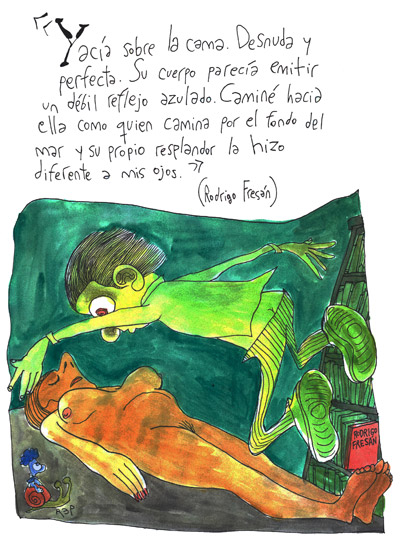 "Yacía sobre la cama. Desnuda y
perfecta. Su cuerpo parecía emitir
un débil reflejo azulado. Caminé hacia
ella como quien camina por el fondo del
mar y su propio resplandor la hizo
diferente a mis ojos."
(Rodrigo Fresán)
RODRIGO
FRESÁN
ABP